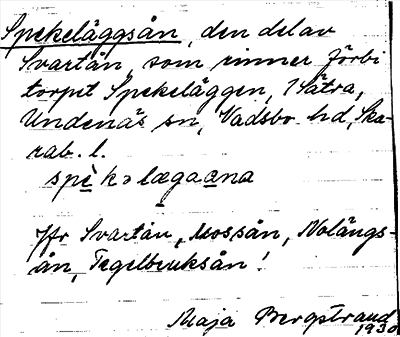 Spekeläggsån, den del av
Svartån, som rinner förbi
torpet Spekeläggen, i Sätra,
Undenäs sn, Vadsbo hd, Ska-
rab. l.
spèkəlægaana
Jfr Svartån, Mossån, Nolängs-
ån, Tegelbruksån!
Maja Bergstrand
1930